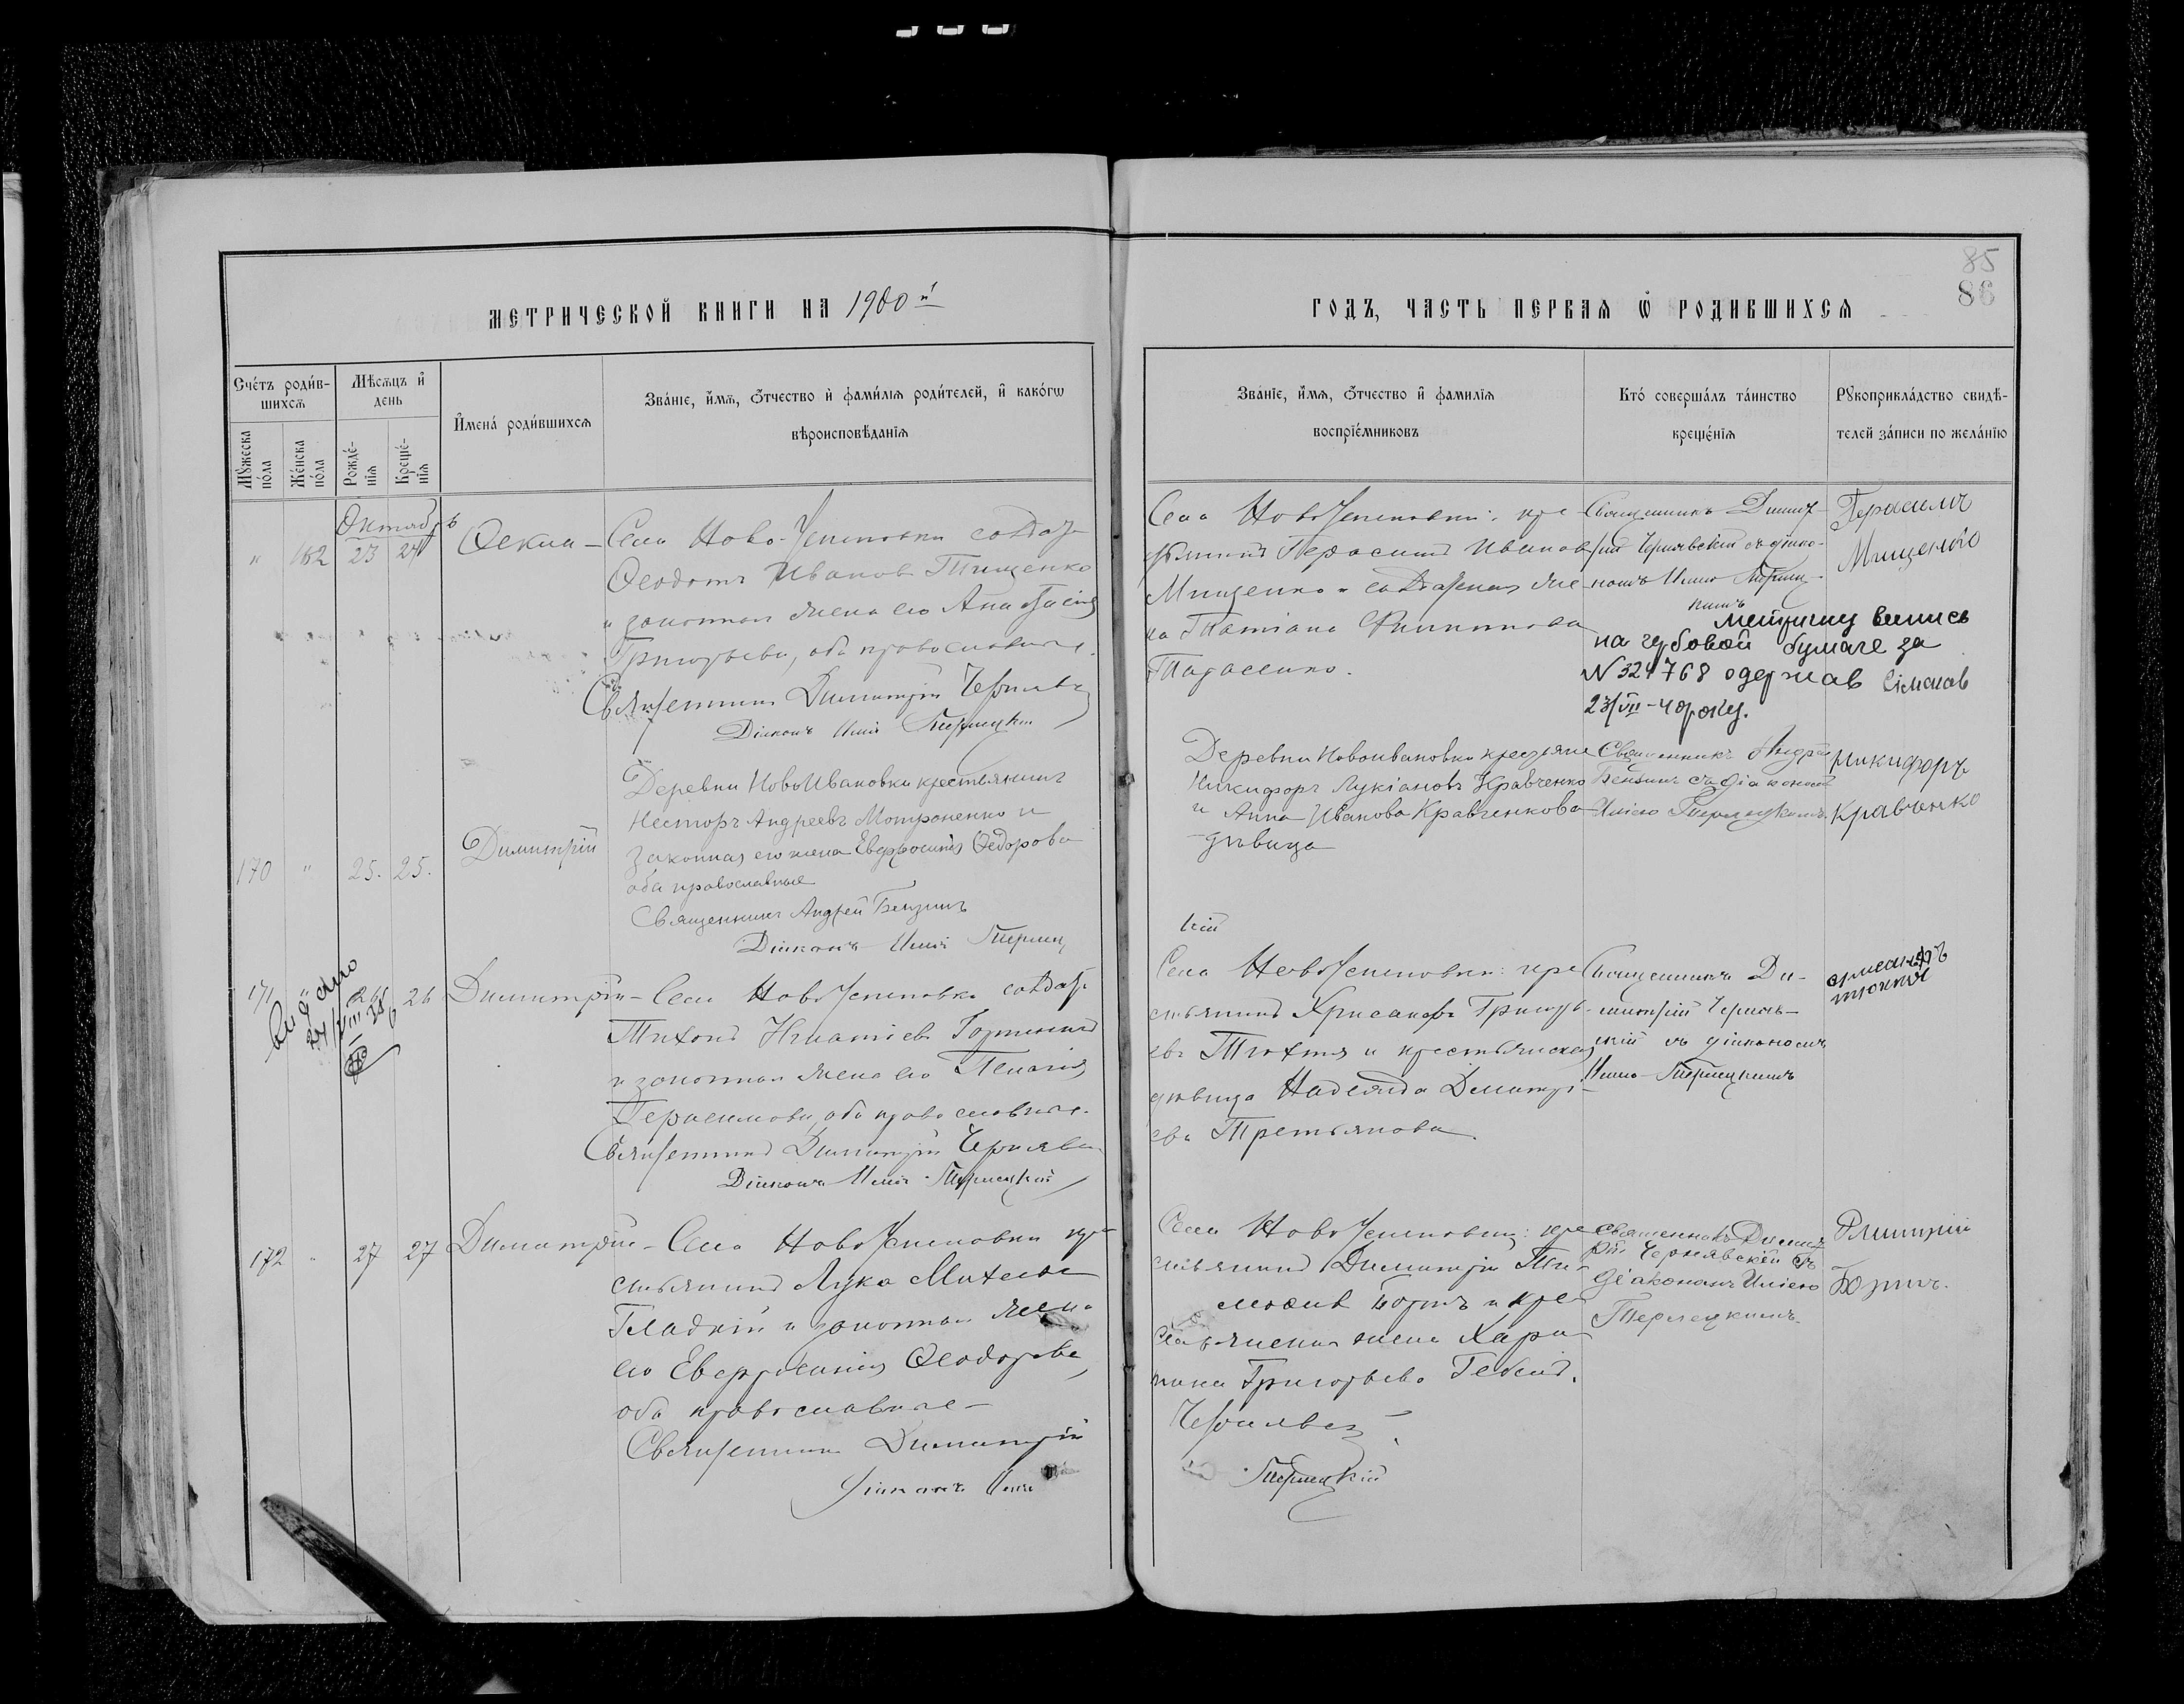 85
86
МЕТРИЧЕСКОЙ КНИГИ НА 1900 й
ГОДЪ, ЧАСТЬ ПЕРВАЯ Ѿ РОДИВШИХСЯ
Счетъ родив-
шихся
Мѣсяцъ и
день
Мужеска
пола
Женска
пола
Рожде-
нія
Креще-
нія
Имена родившихся
Званіе, имя, отчество и фамилія родителей, и какогѡ
вѣроисповѣданія
Званіе, имя, отчество и фамилія
воспріемниковъ
Кто совершалъ таинство
крещенія
Рукоприкладство свидѣ-
телей записи по желанію
Октябрь
" 162 23 24 Ѳекла
Села Ново-Успеновки солдатъ
Ѳеодотъ Иванов Тищенко
и законная жена его Анастасія
Григорьева, оба православные.
Священникъ Димитрій Чернявскій
Діаконъ Илія Терлецкій
Села НовоУспеновки: кре-
стьянинъ Герасимъ Иванов
Мищенко и солдатская же-
на Татіана Филиппова
Тарасенко.
Священникъ Димит-
рій Чернявскій съ діако-
номъ Иліею Терлец-
кимъ
Герасимъ
Мищенко
Метричну випись
на гербовой бумаге за
N 324768 одержав
23/VII - 40 року.
170 " 25. 25. Димитрій
Деревни НовоИвановки крестьянинъ
Несторъ Андреевъ Мотроненко и
законная его жена Евфросинія Ѳедорова
оба православные
Священникъ Андрей Бензинъ
Діаконъ Илія Терлец
кій
Деревни Новоивановки крестьяне
Никифоръ Лукіановъ Кравченко
и Анна Иванова Кравченкова
дѣвица
Священникъ Андрей
Бензинъ съ діакономъ
Иліею Терлецкимъ.
Никифоръ
Кравченко
171 " 26 26 Димитрій
Видано
24/VIII
Села НовоУспеновки солдатъ
Тихонъ Игнатіевъ
и законная жена его Пелагія
Герасимова, оба православные.
Священникъ Димитрій Чернявскій
Діаконъ Илія Терлецкій
Села НовоУспеновки: кре
стьянинъ Хрисанфъ Григорь-
евъ Тюхтя и крестьянская
дѣвица Надежда Димитрі-
ева Третьякова.
Священникъ Ди-
митрій Чернявс-
кій съ діакономъ
Иліею Терлецкимъ
172 " 27 27 Димитрій
Села НовоУспеновки кре-
стьянинъ Лука Михеевъ
Гладкій и законная жена
его Евфросинія Ѳеодорова,
оба православные
Священникъ Димитрій
Діаконъ Илія
Села НовоУспеновки: кре
стьянинъ Димитрій Ти-
моѳеевъ Боринъ и кре-
стьянская жена Хари
тина Григорьева
Чернявскій
Терлецкій
Священникъ Димит
рій Чернявскій съ
діакономъ Иліею
Терлецкимъ.
Димитрій